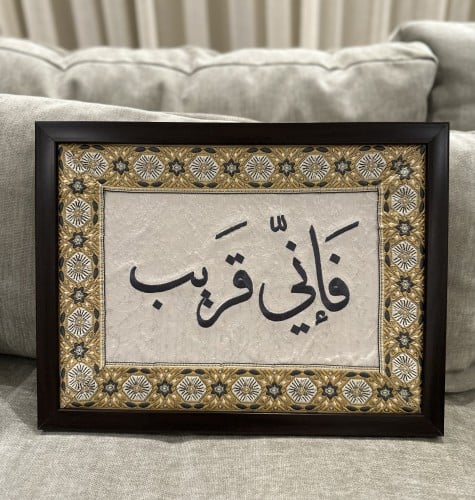 فَإِنِّي قَرِيب